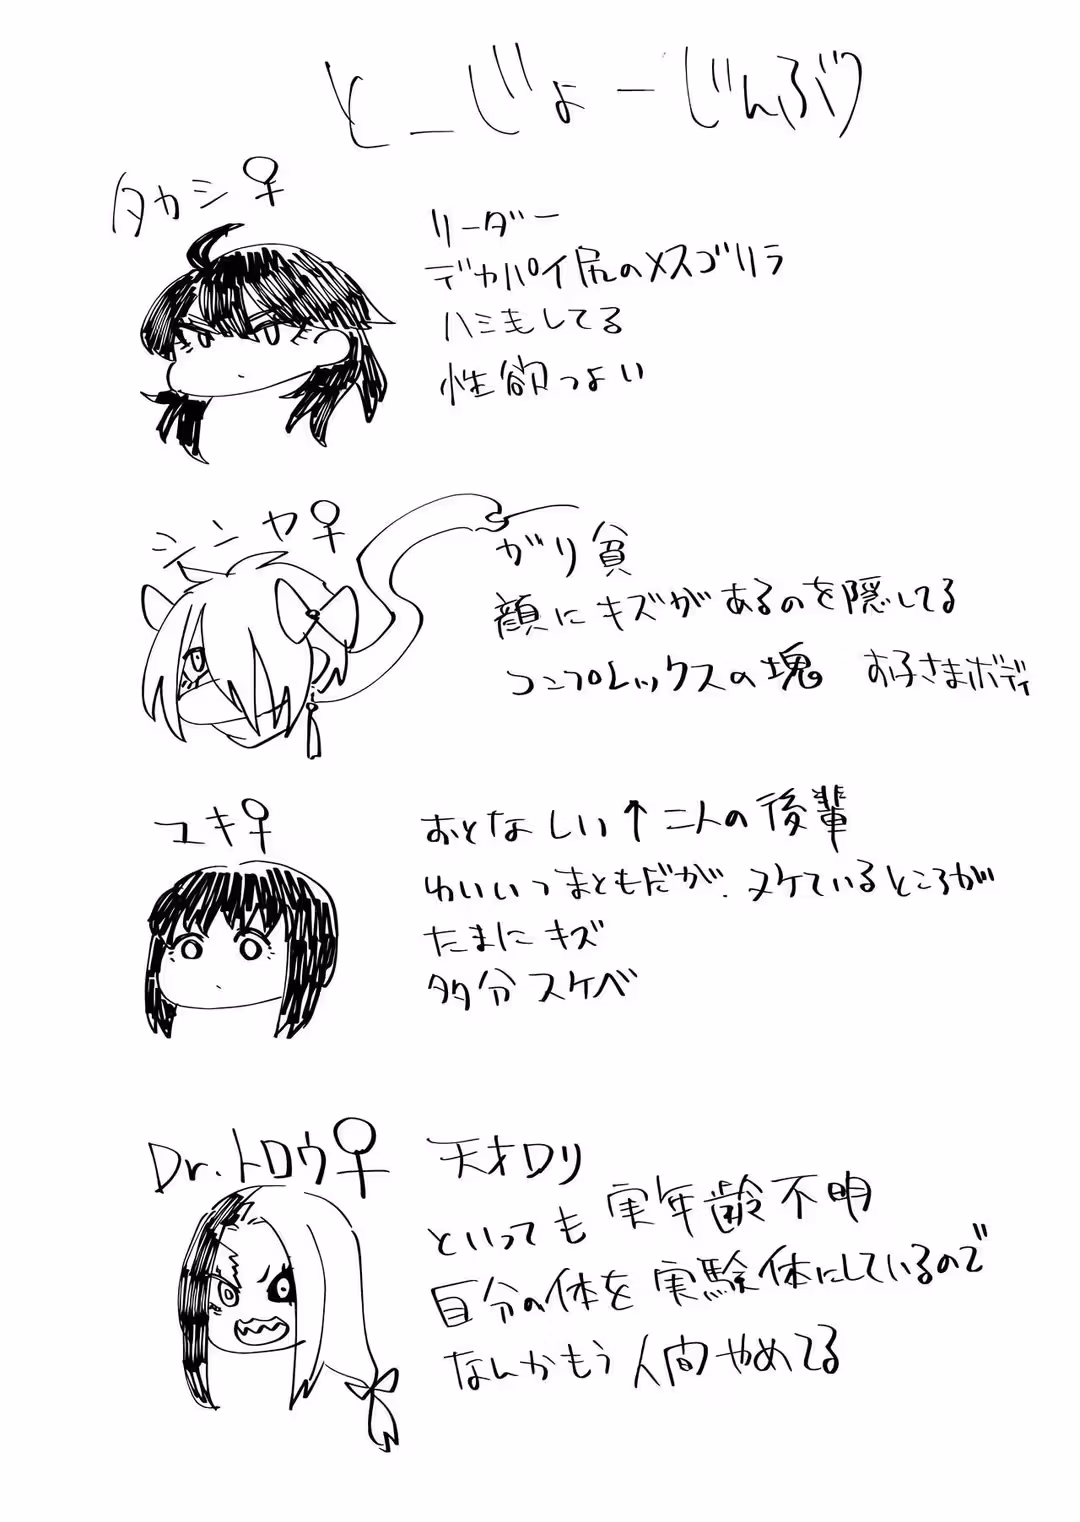 とーじょーじんぶつ
タカシ♀
リーダー
デカパイ尻のメスゴリラ
ハミ毛してる
性欲つよい
シンヤ♀
がり貧
顔にキズがあるのを隠してる
コンプレックスの塊 お子さまボディ
ユキ♀
おとなしい↑二人の後輩
わいいつまともだが、ヌケているところが
たまにキズ
多分スケベ
Dr.トロウ♀
天才ロリ
といっても実年齢不明
自分の体を実験体にしているので
なんかもう人間やめてる